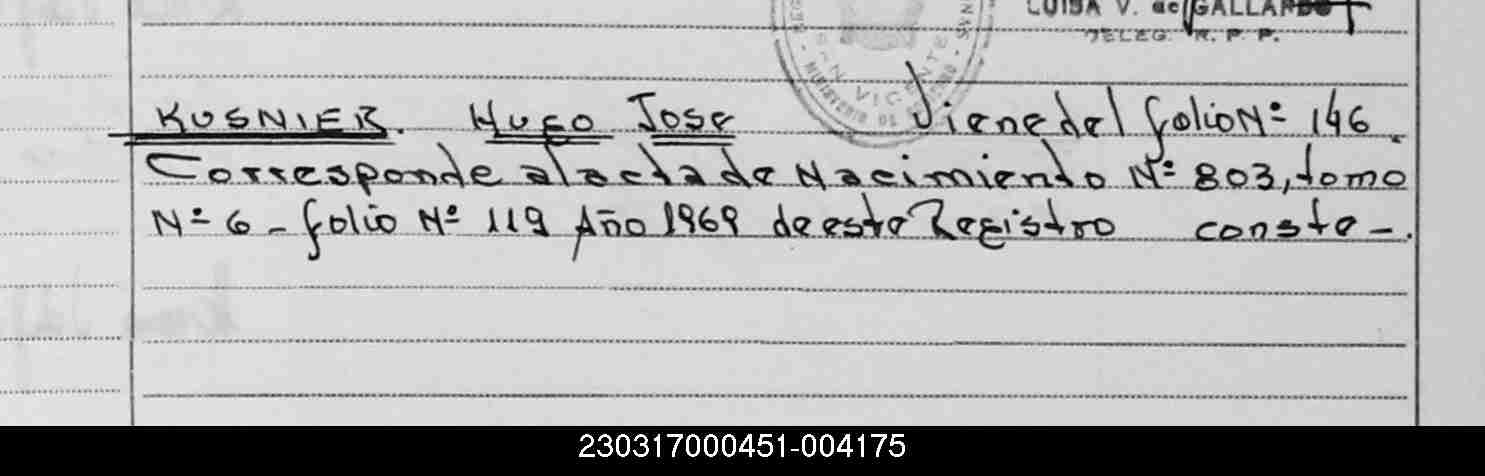 LUISA V. de GALLARDO
DELEG. R. P. P.
KUSNIER. HUGO JOSE Viene del folio Nº 146.
Corresponde al acta de Nacimiento Nº 803, tomo
Nº 6 - folio Nº 119 Año 1969 de este Registro conste -.
230317000451-004175